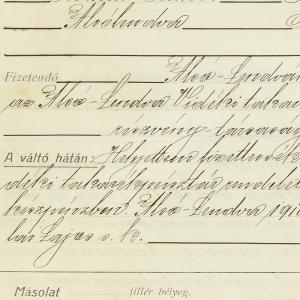 Alsólendva
Fizetendő Alsó-Lendván
az Alsó-Lendva Vidéki taka
részvény társaság
A váltó hátán: Helyettem fizetlessék
déki takarékpénztár rendelet
készpénzben. Alsó-Lendva 191
lai Lajos s. k.
Másolat fillér bélyeg.